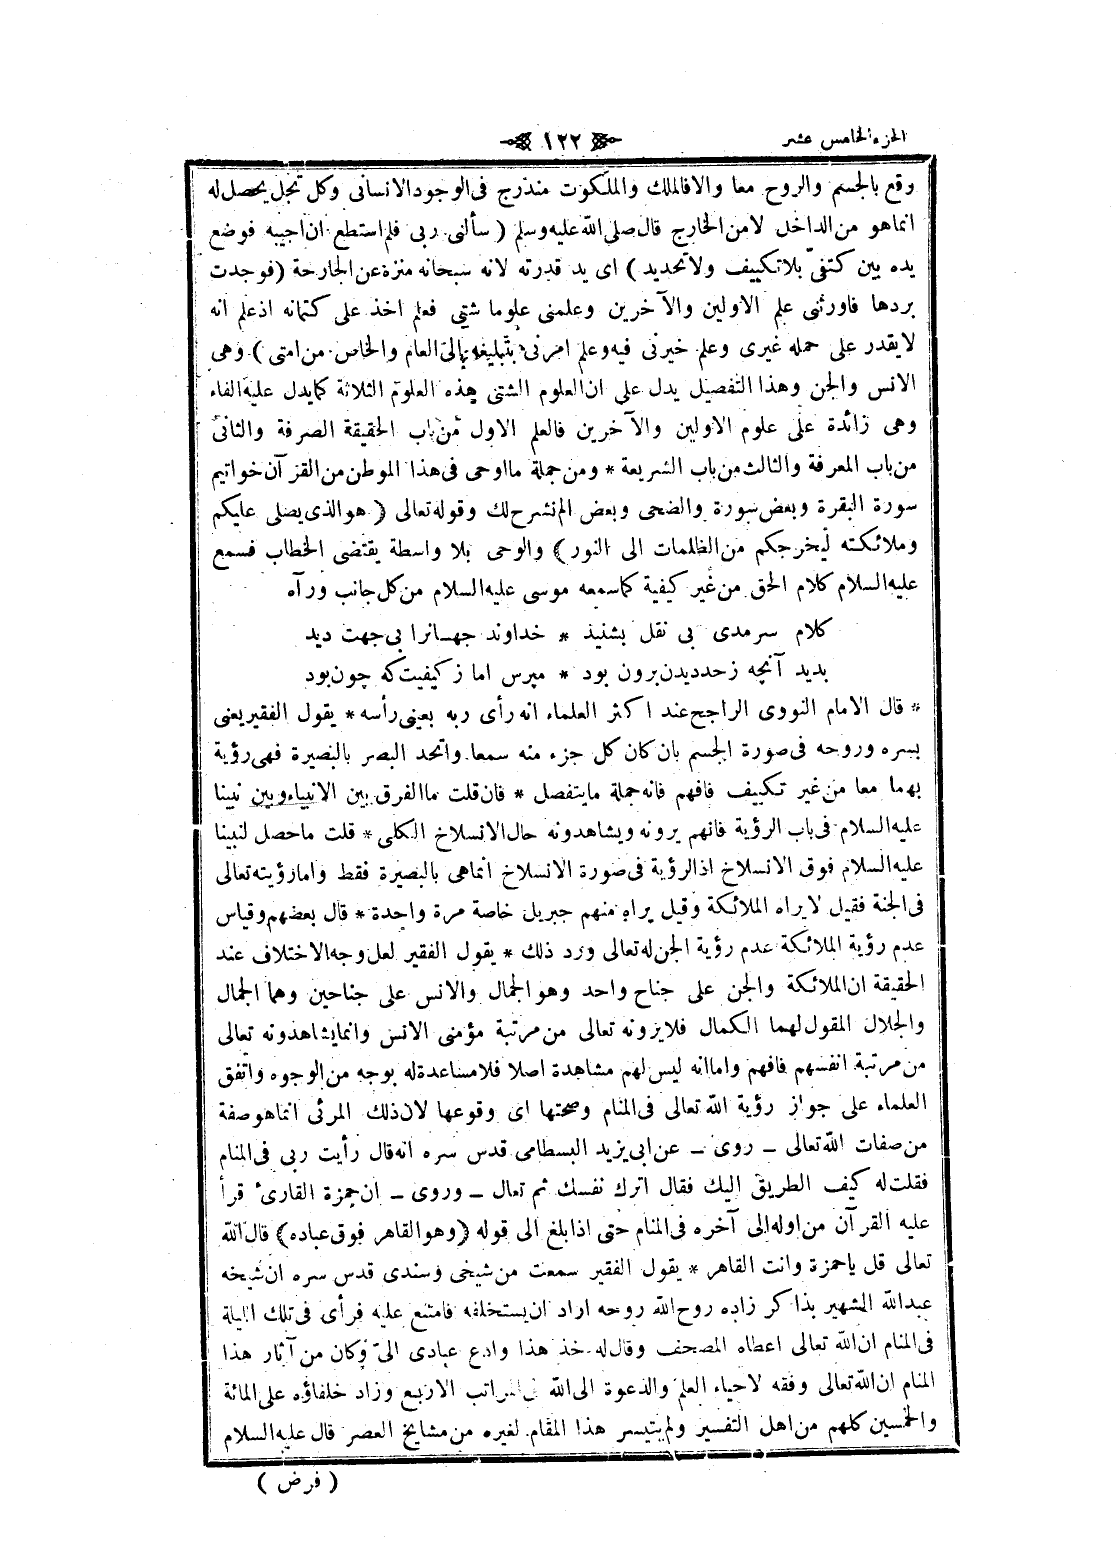 الجزء الخامس عشر
١٢٢
وقع بالجسم والروح معا والا فالملك والملكوت مندرج فى الوجود الانسانى وكل تجل يحصل له
انما هو من الداخل لا من الخارج قال صلى الله عليه وسلم ( سألنى ربى فلم استطع ان اجيبه فوضع
يده بين كتفىّ بلا تكييف ولا تحديد ) اى يد قدرته لانه سبحانه منزه عن الجارحة ( فوجدت
بردها فاورثنى علم الاولين والآخرين وعلمنى علوما شتى فعلم اخذ على كتمانه اذ علم انه
لا يقدر على حمله غيرى وعلم خيرنى فيه وعلم امرنى بتبليغه الى العام والخاص من امتى ) وهى
الانس والجن وهذا التفصيل يدل على ان العلوم الشتى هذه العلوم الثلاثة كما يدل عليه الفاء
وهى زائدة على علوم الاولين والآخرين فالعلم الاول من باب الحقيقة الصرفة والثانى
من باب المعرفة والثالث من باب الشريعة * ومن جملة ما اوحى فى هذا الموطن من القرآن خواتيم
سورة البقرة وبعض سورة والضحى وبعض الم نشرح لك وقوله تعالى ( هو الذى يصلى عليكم
وملائكته ليخرجكم من الظلمات الى النور ) والوحى بلا واسطة يقتضى الخطاب فسمع
عليه السلام كلام الحق من غير كيفية كما سمعه موسى عليه السلام من كل جانب ورآه
كلام سرمدى بى نقل بشنيذ * خداوند جهانرا بى جهت ديد
بديد آنچه زحد ديدن برون بود * مپرس اما ز كيفيت كه چون بود
* قال الامام النووى الراجح عند اكثر العلماء انه رأى ربه بعينى رأسه * يقول الفقير يعنى
بسره وروحه فى صورة الجسم بان كان كل جزء منه سمعا واتحد البصر بالبصيرة فهى رؤية
بهما معا من غير تكييف فافهم فانه جملة ما يتفصل * فان قلت ما الفرق بين الانبياء وبين نبينا
عليه السلام فى باب الرؤية فانهم يرونه ويشاهدونه حال الانسلاخ الكلى * قلت ما حصل لنبينا
عليه السلام فوق الانسلاخ اذ الرؤية فى صورة الانسلاخ انما هى بالبصيرة فقط واما رؤيته تعالى
فى الجنة فقيل لا يراه الملائكة وقيل يراه منهم جبريل خاصة مرة واحدة * قال بعضهم وقياس
عدم رؤية الملائكة عدم رؤية الجن له تعالى ورد ذلك * يقول الفقير لعل وجه الاختلاف عند
الحقيقة ان الملائكة والجن على جناح واحد وهو الجمال والانس على جناحين وهما الجمال
والجلال المقول لهما الكمال فلا يرونه تعالى من مرتبة مؤمنى الانس وانما يشاهدونه تعالى
من مرتبة انفسهم فافهم واما انه ليس لهم مشاهدة اصلا فلا مساعدة له بوجه من الوجوه واتفق
العلماء على جواز رؤية الله تعالى فى المنام وصحتها اى وقوعها لان ذلك المرئى انما هو صفة
من صفات الله تعالى _ روى _ عن ابى يزيد البسطامى قدس سره انه قال رأيت ربى فى المنام
فقلت له كيف الطريق اليك فقال اترك نفسك ثم تعال _ وروى _ ان حمزة القارئ قرأ
عليه القرآن من اوله الى آخره فى المنام حتى اذا بلغ الى قوله ( وهو القاهر فوق عباده ) قال الله
تعالى قل يا حمزة وانت القاهر * يقول الفقير سمعت من شيخى وسندى قدس سره ان شيخه
عبد الله الشهير بذاكر زاده روح الله روحه اراد ان يستخلفه فامتنع عليه فرأى فى تلك الليلة
فى المنام ان الله تعالى اعطاه المصحف وقال له خذ هذا وادع عبادى الىّ وكان من آثار هذا
المنام ان الله تعالى وفقه لاحياء العلم والدعوة الى الله فى المراتب الاربع وزاد خلفاؤه على المائة
والخمسين كلهم من اهل التفسير ولم يتيسر هذا المقام لغيره من مشايخ العصر قال عليه السلام
( فرض )